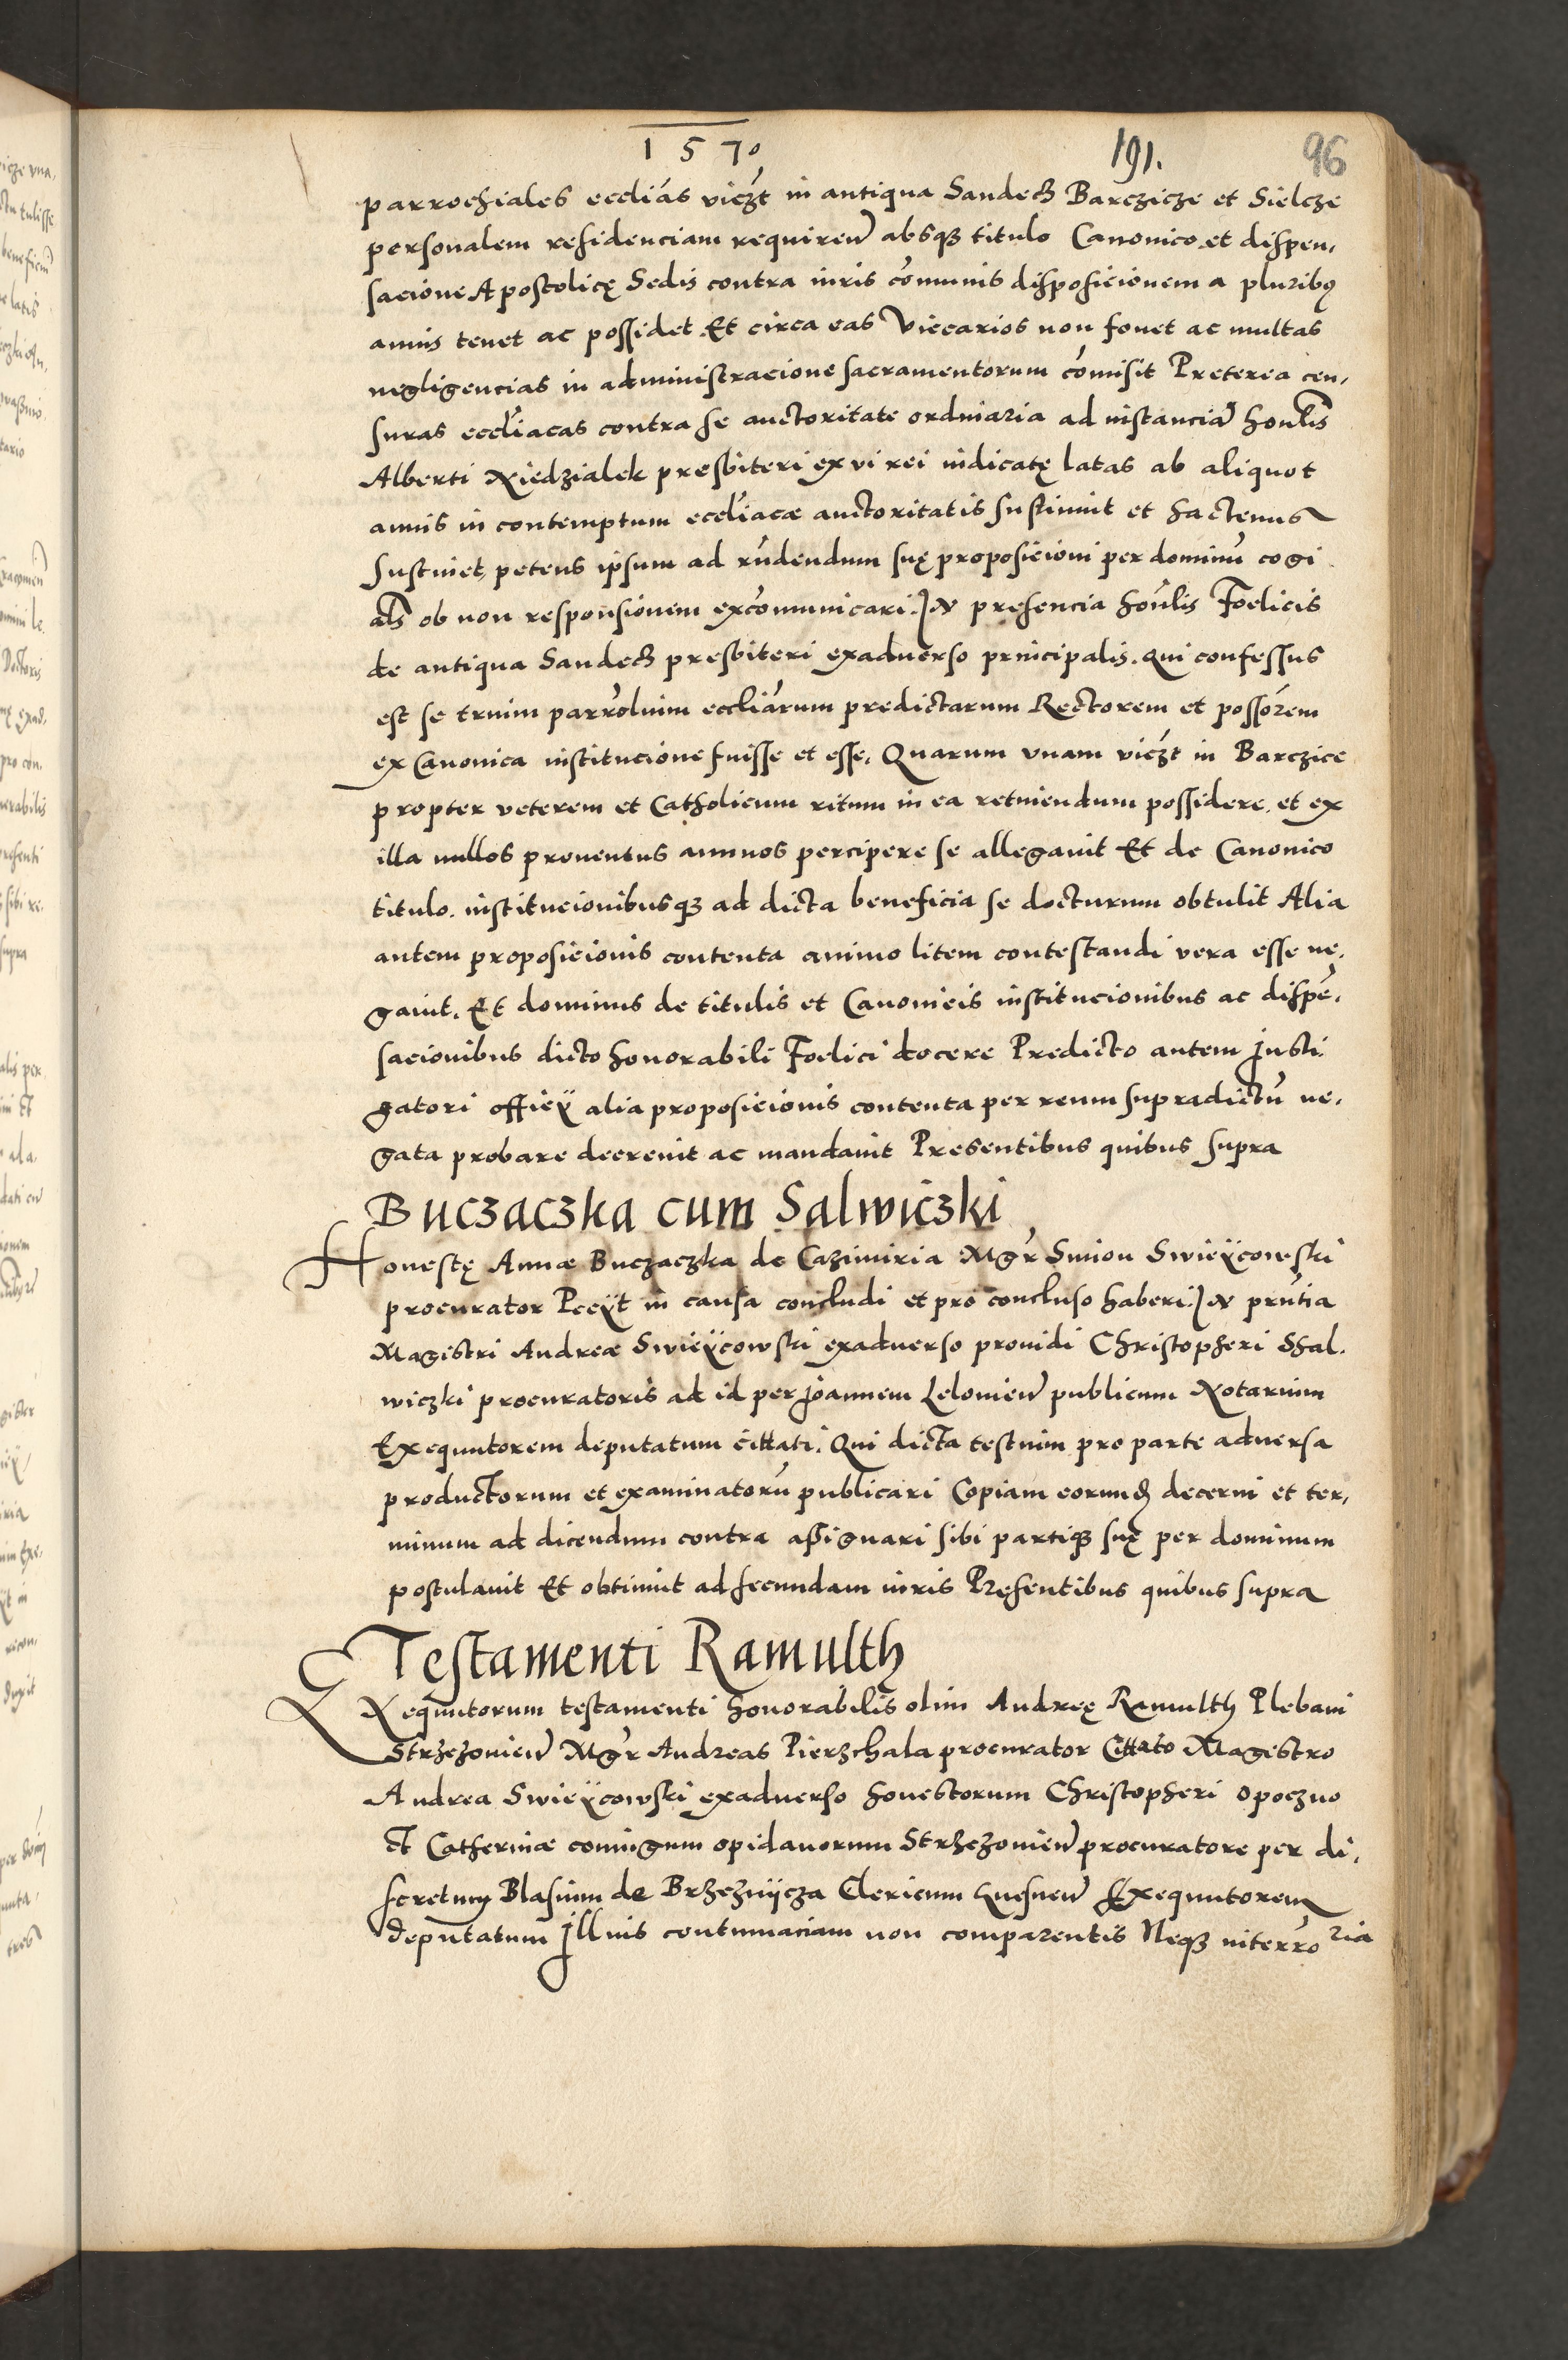 1570
191.
96
parrochiales eccliãs viczt in antiqua Sandecz Barczicze et Sielcze
personalem residenciam requiren absqȝ titulo Canonico et dispen,
sacione Apostolicę Sedis contra iuris cõmunis disposicionem a pluribꝰ
annis tenet ac possidet. Et circa eas Viccarios non fouet ac multas
negligencias in administracione sacramentorum cõmisit Preterea cen,
suras eccliacas contra se auctoritate ordinaria ad instanciã honlis
Alberti Niedzialek presbiteri ex vi rei iudicatę latas ab aliquot
annis in contemptum eccliacæ auctoritatis sustinuit et hactenus
sustinet, petens ipsum ad rñdendum suę proposicioni per dominũ cogi
als ob non responsionem excõmunicari. In presencia honlis Foelicis
de antiqua Sandecz presbiteri exaduerso principalis. Qui confessus
est se trium parrõluim eccliãrum predictarum Rectorem et possõrem
ex Canonica institucione fuisse et esse, Quarum vnam viczt in Barczice
propter veterem et Catholicum ritum in ea retinendum possidere. et ex
illa nullos prouentus annuos percipere se allegauit Et de Canonico
titulo. institucionibusqȝ ad dicta beneficia se docturum obtulit Alia
autem proposicionis contenta animo litem contestandi vera esse ne,
gauit. Et dominus de titulis et Canonicis institucionibus ac dispẽ,
sacionibus dicto honorabili Foelici docere Predicto autem Insti
gatori officÿ alia proposicionis contenta per reum supradictũ ne,
gata probare decreuit ac mandauit Presentibus quibus supra
Buczaczka cum Salwiczki
Honestę Annæ Buczaczka de Cazimiria Mgr Simon Swieÿcowski
procurator Pccÿt in causa concludi et pro concluso haberi. In prñtia
Magistri Andreæ Swieÿcowski exaduerso prouidi Christopheri Shal.
wiczki procuratoris ad id per Joannem Lelouien publicum Notarium
Exequutorem deputatum cittati. Qui dicta testium pro parte aduersa
productorum et examinatorũ publicari Copiam eorund decerni et ter,
minum ad dicendum contra assignari sibi partiqȝ suę per dominum
postulauit Et obtinuit ad secundam iuris Pręsentibus quibus supra
Testamenti Ramulth
Exequutorum testamenti honorabilis olim Andreę Ramulth Plebani
Strzezouien Mgr Andreas Pierzchala procurator Cittato Magistro
Andrea Swieÿcowski exaduerso honestorum Christopheri Opoczno
et Catherinæ coniugum opidanorum Strzezouien procuratore per di,
scretum Blasium de Brzeznÿcza Clericum Gnesnen Exequutorem
deputatum Illius contumaciam non comparentis Neqȝ interrõria